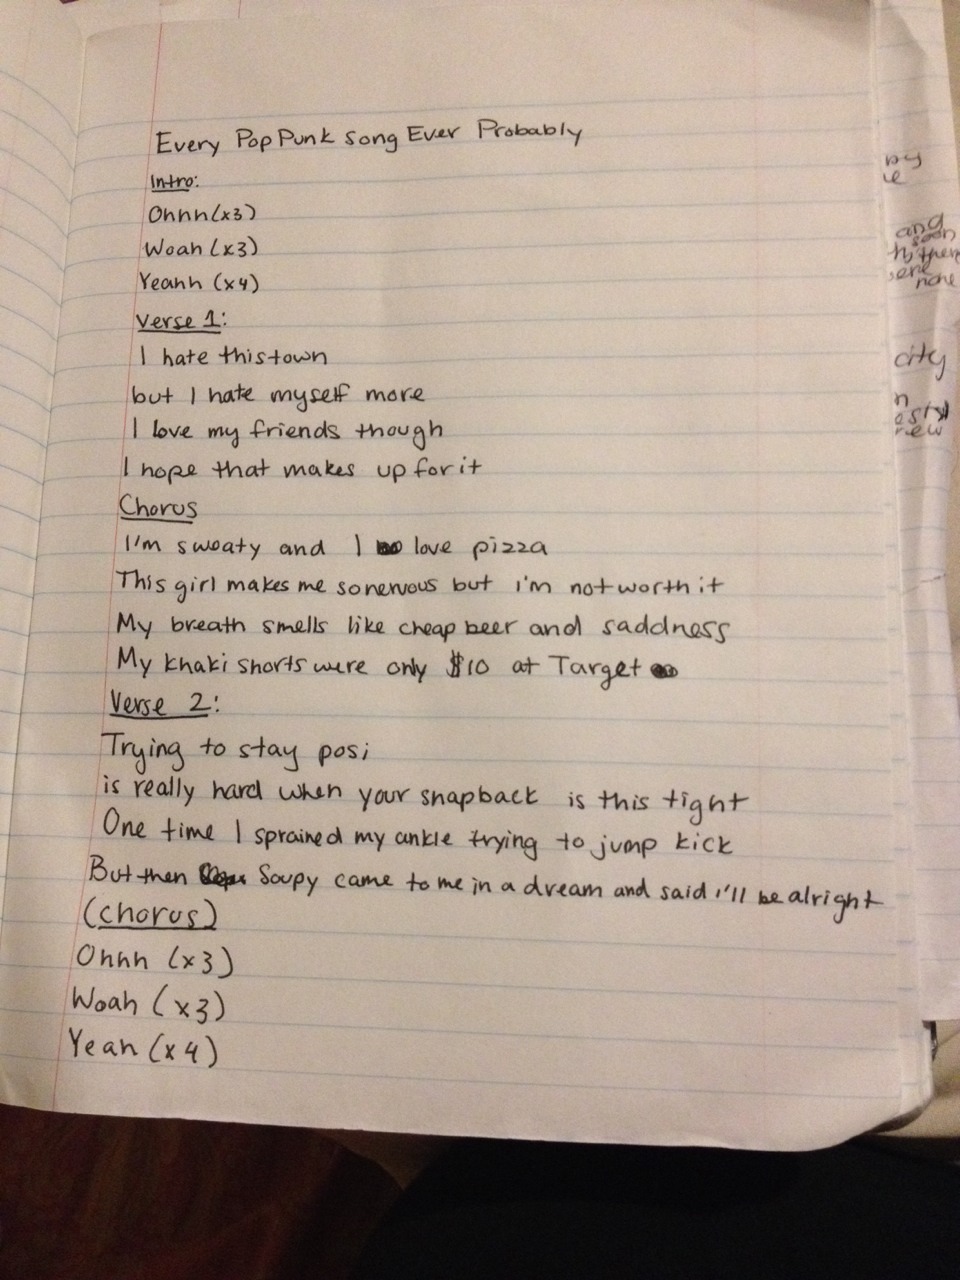 Every Pop Punk Song Ever Probably
Intro:
Ohhh (x3)
Woah (x3)
Yeahh (x4)
Verse 1:
I hate this town
but I hate myself more
I love my friends though
I hope that makes up for it
Chorus
I'm sweaty and I love pizza
This girl makes me so nervous but i'm not worth it
My breath smells like cheap beer and saddness
My khaki shorts were only $10 at Target
Verse 2:
Trying to stay posi
is really hard when your snapback is this tight
One time I sprained my ankle trying to jump kick
But then Soupy came to me in a dream and said i'll be alright
(chorus)
Ohhh (x3)
Woah (x3)
Yeah (x4)
and
soon
city
new